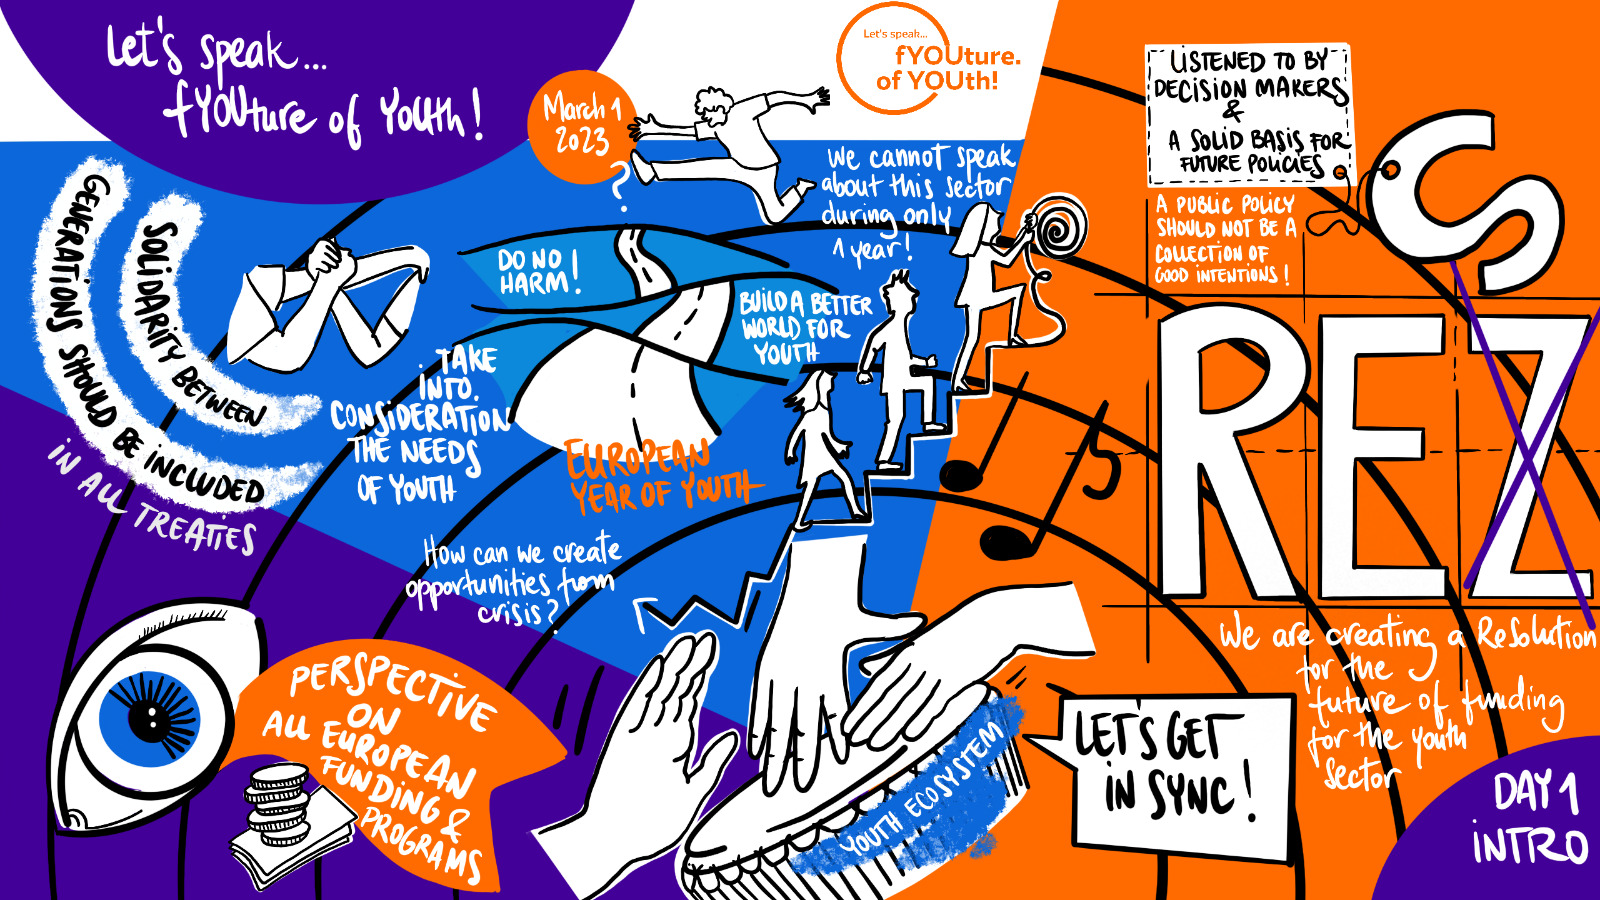 Let's speak...
fYOUture of YOUth!
March 1
2023
Let's speak...
fYOUture.
of YOUth!
?
We cannot speak
about this sector
during only
1 year!
LISTENED TO BY
DECISION MAKERS
&
A SOLID BASIS FOR
FUTURE POLICIES
A PUBLIC POLICY
SHOULD NOT BE A
COLLECTION OF
GOOD INTENTIONS!
S
REZ
SOLIDARITY BETWEEN
GENERATIONS SHOULD BE INCLUDED
IN ALL TREATIES
DO NO
HARM!
BUILD A BETTER
WORLD FOR
YOUTH
TAKE
INTO
CONSIDERATION
THE NEEDS
OF YOUTH
EUROPEAN
YEAR OF YOUTH
How can we create
opportunities from
crisis?
We are creating a ReSolution
for the
future of funding
for the youth
Sector
PERSPECTIVE
ON
ALL EUROPEAN
FUNDING &
PROGRAMS
YOUTH ECOSYSTEM
LET'S GET
IN SYNC!
DAY 1
INTRO